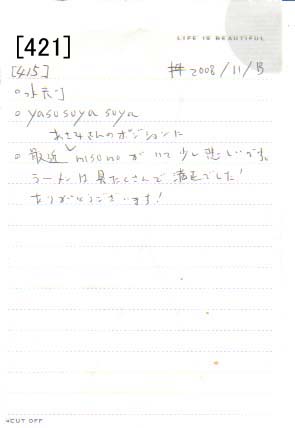 [421]
LIFE IS BEAUTIFUL
[415] 2008/11/13
yasusuya suya
あさみさんのポジションに
○ 最近 misonoがいて少し悲しいです。
ラーメンは具たくさんで満足でした!
ありがとうございます!
CUT OFF